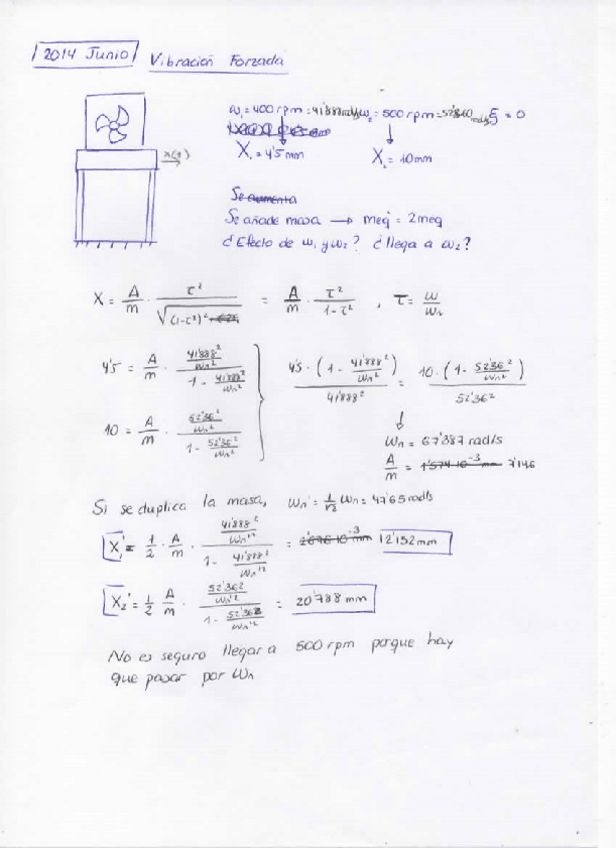 2014 Junio Vibración Forzada
ω₁ = 400 rpm = 41'888 rad/s ω₂ = 500 rpm = 52'360 rad/s ξ = 0
X₁ = 4'5 mm X₂ = 10 mm
x(t)
Se aumenta
Se añade masa → meq' = 2meq
¿Efecto de ω₁ y ω₂? ¿llega a ω₂?
X = A/m · τ²/√((1-τ²)² = A/m · τ²/(1-τ²) , τ = ω/ωn
4'5 = A/m · (41'888²/ωn²)/(1 - 41'888²/ωn²)
10 = A/m · (52'36²/ωn²)/(1 - 52'36²/ωn²)
4'5 · (1 - 41'888²/ωn²)/41'888² = 10 · (1 - 52'36²/ωn²)/52'36²
↓
ωn = 67'387 rad/s
A/m = 1'574·10⁻³ mm 7'146
Si se duplica la masa, ωn' = 1/√2 ωn = 47'65 rad/s
X₁' = 1/2 · A/m · (41'888²/ωn'²)/(1 - 41'888²/ωn'²) = 2'676·10⁻³ mm 12'152 mm
X₂' = 1/2 A/m · (52'36²/ωn'²)/(1 - 52'36²/ωn'²) = 20'788 mm
No es seguro llegar a 500 rpm porque hay
que pasar por ωn